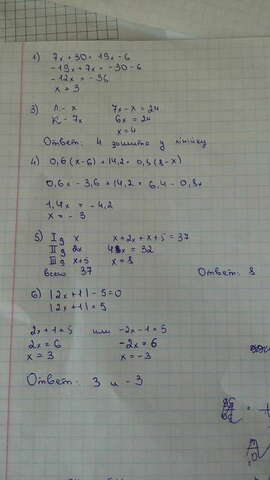 1) 7x + 30 = 19x - 6
-19x + 7x = -30 - 6
-12x = -36
x + 3
3) Л - x 7x - x = 24
К - 7x 6x = 24
x = 4
Ответ: 4 зошита у лінійку
4) 0,6(x-6) + 14,2 = 0,8(8-x)
0,6x - 3,6 + 14,2 = 6,4 - 0,8x
1,4x = -4,2
x = -3
5) I g x x + 2x + x + 5 = 37
II g 2x 4x = 32
III g x+5 x = 8
всего 37 Ответ: 8
6) |2x+1| - 5 = 0
|2x+1| = 5
2x + 1 = 5 или -2x - 1 = 5
2x = 6 -2x = 6
x = 3 x = -3
Ответ: 3 и -3